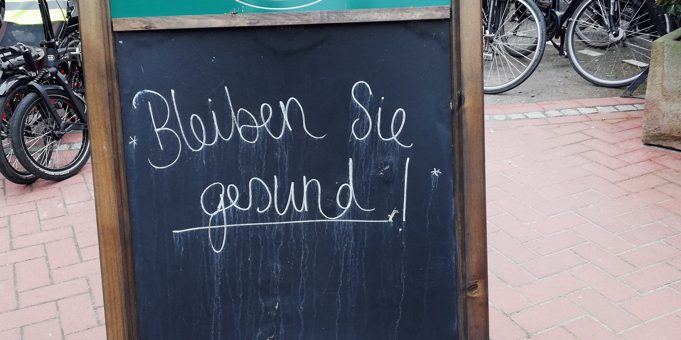 * Bleiben Sie
gesund! *